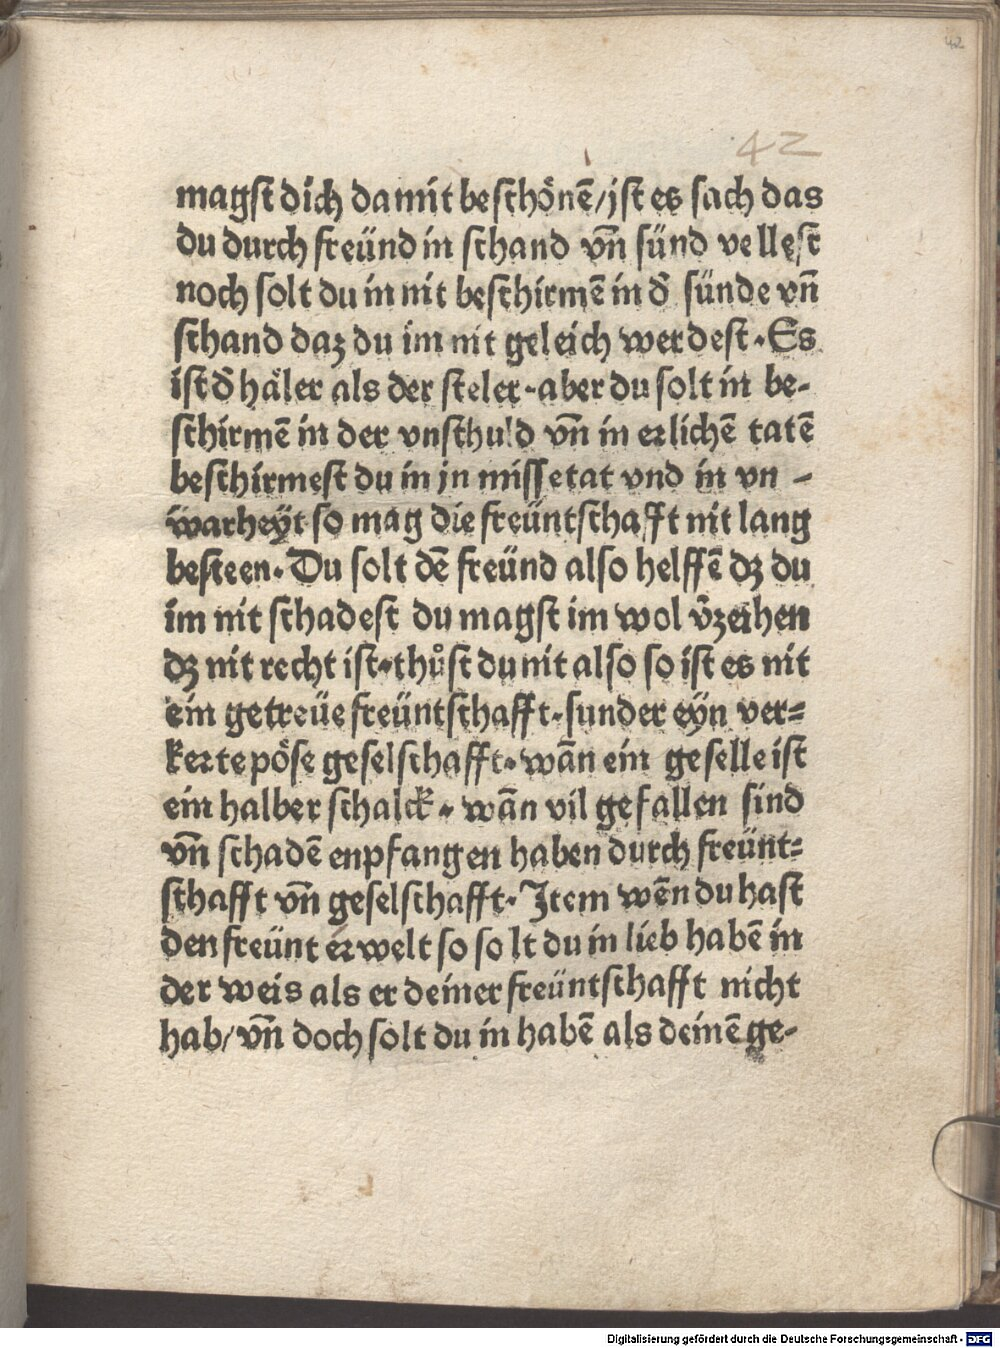 42
42
magst dich damit beschönē/jst es sach das
du durch freünd in schand vn̄ sünd vellest
noch solt du in nit beschirmē in d̄ sünde vn̄
schand daz du im nit geleich werdest. Es
ist d̄ häler als der steler-aber du solt in be-
schirmē in der vnschuld vn̄ in erlichē tatē
beschirmest du in jn missetat vnd in vn -
warheÿt so mag die freüntschafft nit lang
besteen. Du solt dē freünd also helffē dz du
im nit schadest du magst im wol v̄zeihen
dz nit recht ist.thůst du nit also so ist es nit
ein getreüe freüntschafft.sunder eÿn ver=
kerte pöse geselschafft. wān ein geselle ist
ein halber schalck. wān vil gefallen sind
vn̄ schadē enpfangen haben durch freünt=
schafft vn̄ geselschafft. Jtem wēn du hast
den freünt erwelt so solt du in lieb habē in
der weis als er deiner freüntschafft nicht
hab/vn̄ doch solt du in habē als deinē ge-
Digitalisierung gefördert durch die Deutsche Forschungsgemeinschaft - DFG